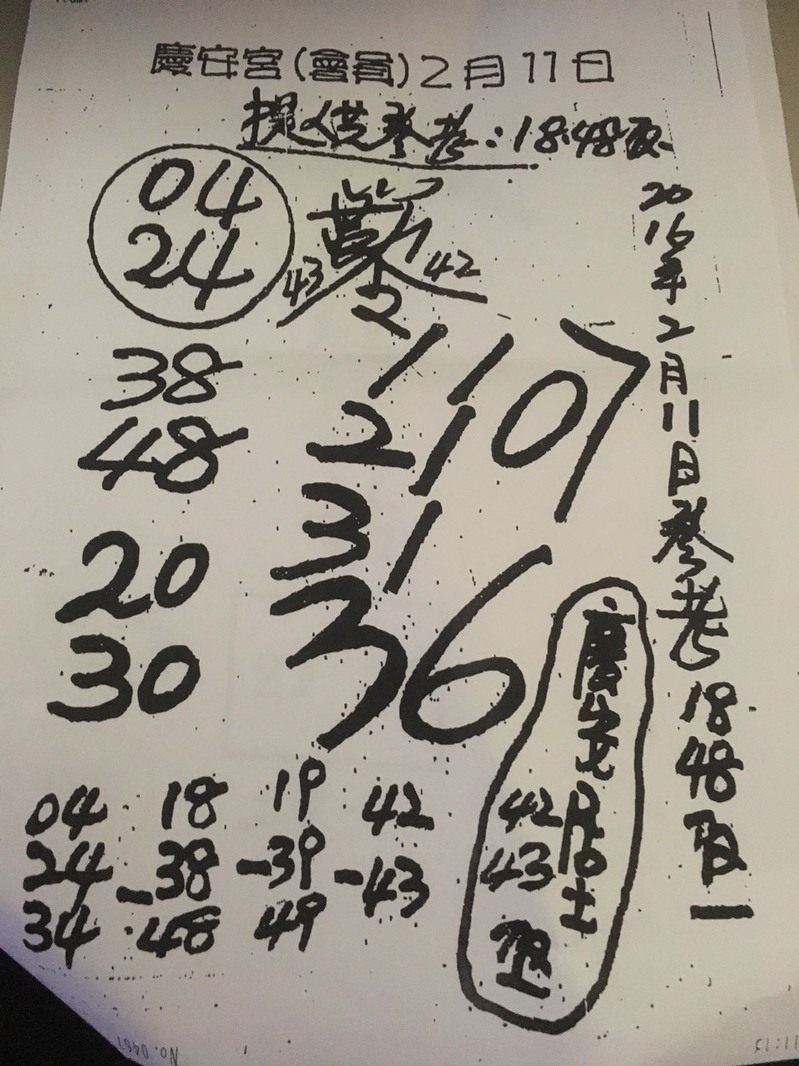 慶安宮(會員)2月11日
提供參考:18.48取
04
24
43
42
2
38
48
20
30
11
07
21
31
36
2016年2月11日參考18 48取一
慶安居士
42
43
取一
04 18 19 42
24-38-39-43
34 48 49
No. 0461
11:13